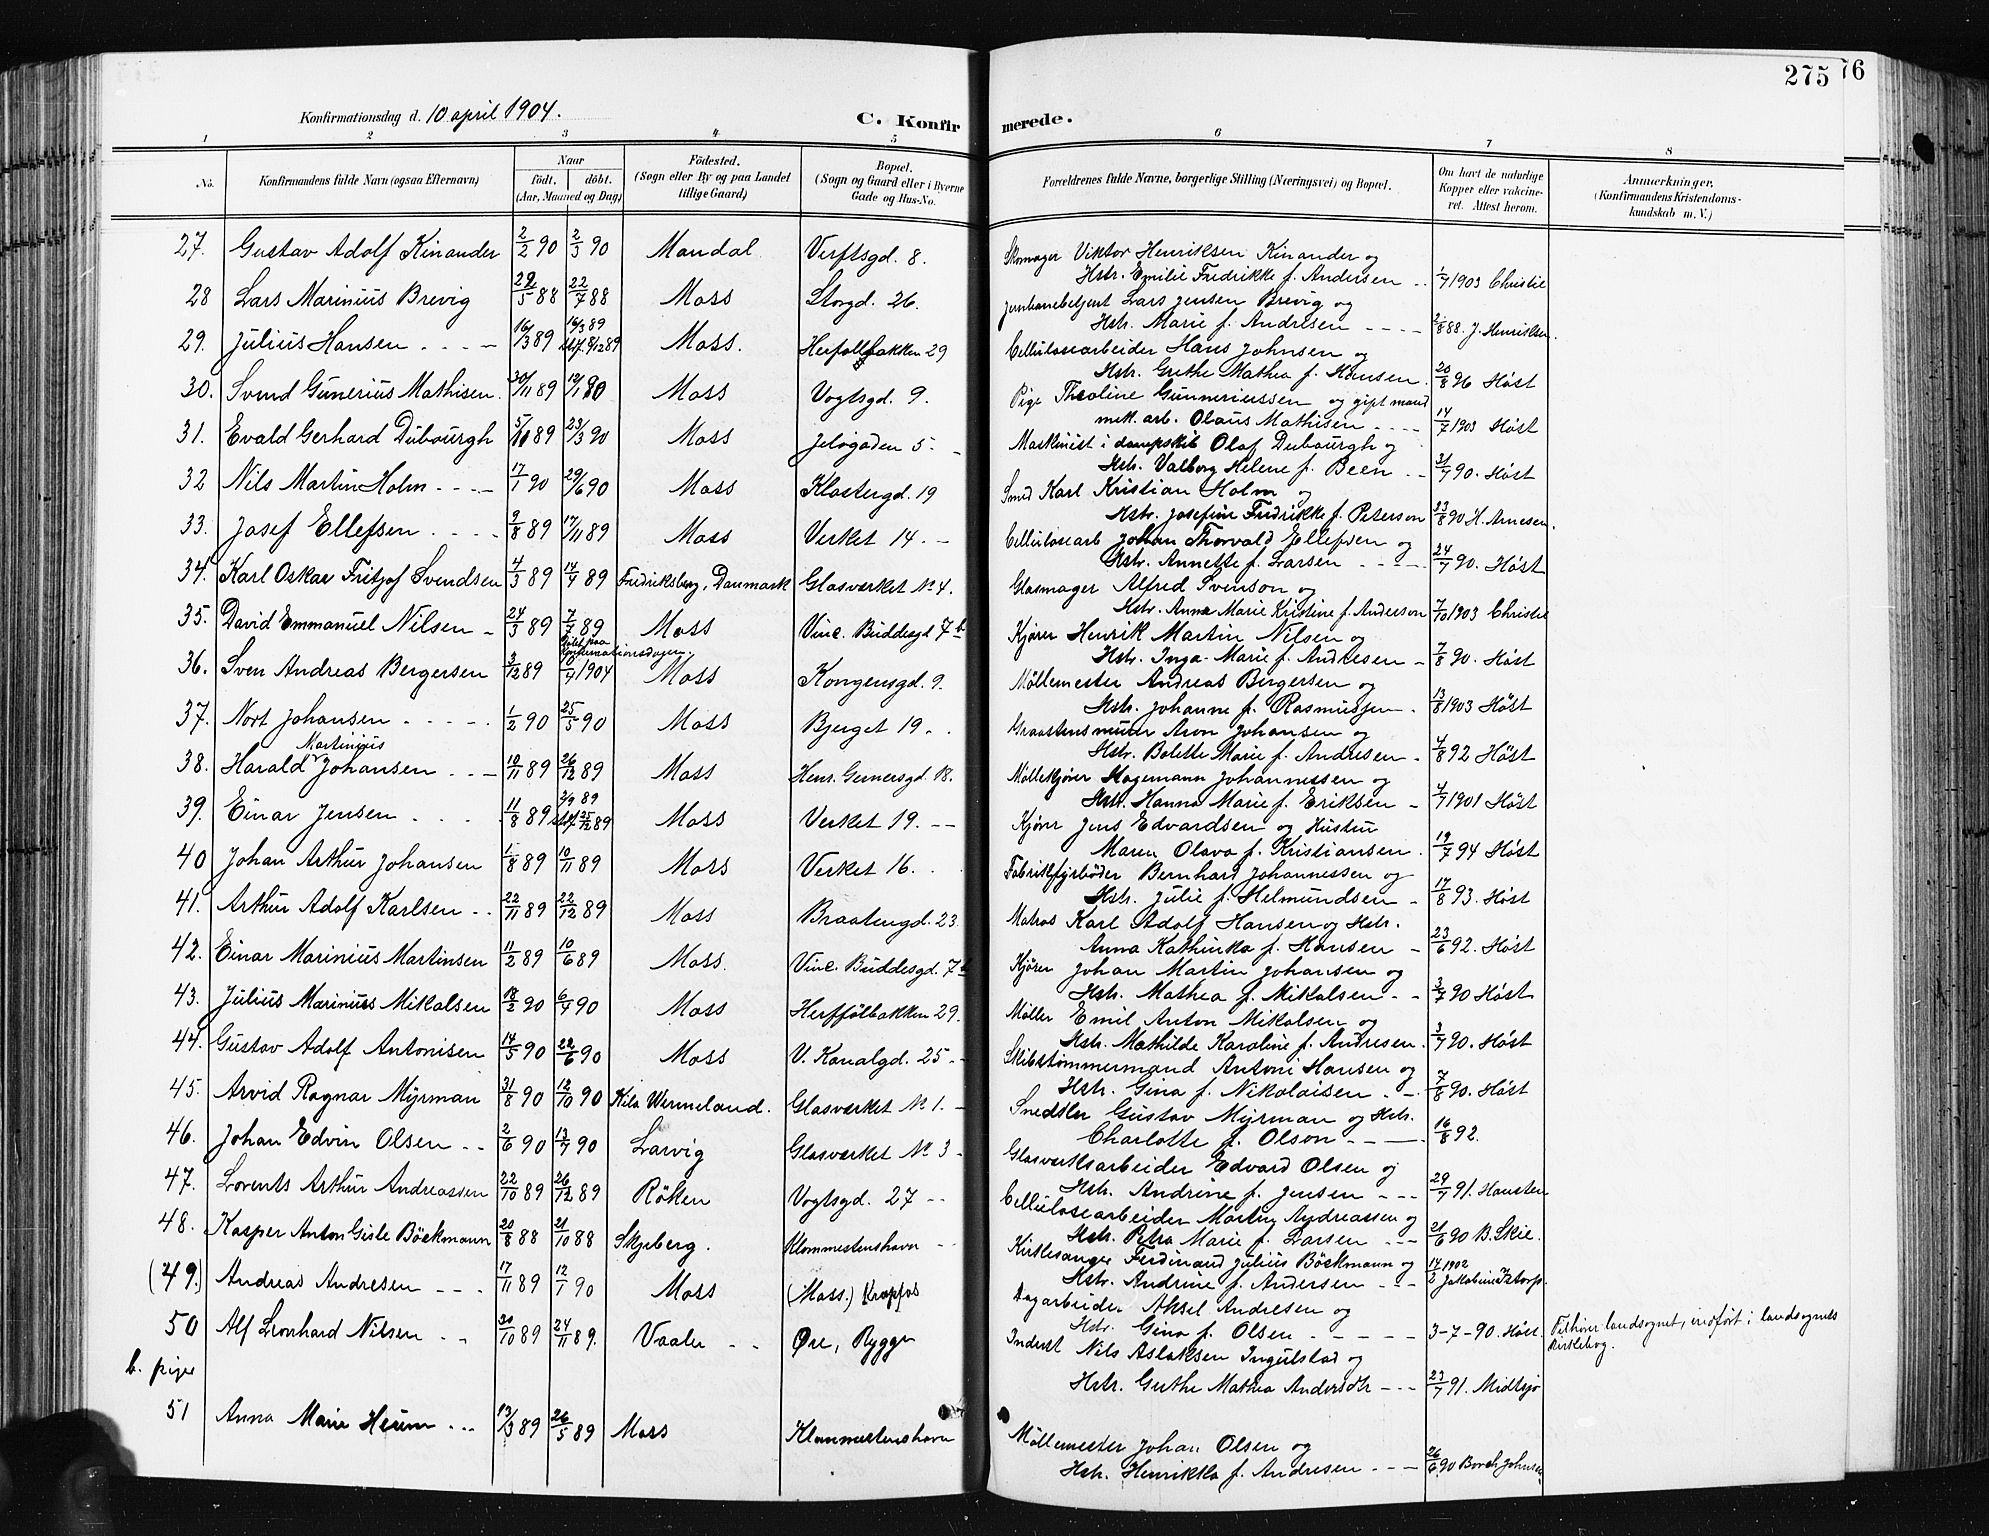 275
76
Konfirmationsdag d. 10 april 1904.
C. Konfirmerede.
1 2 3 4 5 6 7 8
No.
Konfirmandens fulde Navn (ogsaa Efternavn)
Naar
födt. döbt.
(Aar, Maaned og Dag)
Födested.
(Sogn eller By og paa Landet
tillige Gaard)
Bopæl.
(Sogn og Gaard eller i Byerne
Gade og Hus-No.
Forældrenes fulde Navne, borgerlige Stilling (Næringsvei) og Bopæl.
Om havt de naturlige
Kopper eller vakcine-
ret. Attest herom.
Anmærkninger.
(Konfirmandens Kristendoms-
kundskab m. V.)
27. Gustav Adolf Kinander 2/2 90 2/3 90 Mandal Verftsgd. 8. Skomager Viktor Henriksen Kinander og
Hstr. Emilie Fredrikke f. Andersen 1/7 1903 Christie
28 Lars Marinius Brevig 22/5 88 22/7 88 Moss Storgd. 26. Jernbanebetjent Lars Jensen Brevig og
Hstr. Marie f. Andresen 2/8 88. J. Henriksen.
29. Julius Hansen 16/3 89 16/3 89 Moss. Herfølbakken 29 Cellulosearbeider Hans Johnsen og
Hstr. Grethe Mathea f. Hansen 20/8 96 Höst
30. Svend Gunerius Mathisen. 30/11 89 12/1 90 Moss Vogtsgd. 9. Pige Theoline Gunneriussen og gift mand
mek. arb. Olaus Mathisen 14/7 1903 Höst
31. Evald Gerhard Dubourgh 5/10 89 23/3 90 Moss Jeløgaden 5. Maskinist i dampskib Olaf Dubourgh og
Hstr. Valborg Helene f. Been 31/7 90. Höst
32 Nils Martin Holm 17/1 90 29/6 90 Moss Klostergd. 19 Smed Karl Kristian Holm og
Hstr. Josefine Fredrikke f. Peterson 23/8 90 H. Arnesen.
33. Josef Ellefsen 9/8 89 17/11 89 Moss Verket 14. Cellulosearb Johan Thorvald Ellefsen og
Hstr. Annette f. Larsen 24/7 90. Höst
34. Karl Oskar Fritjof Svendsen 4/3 89 14/4 89 Fredriksberg, Danmark Glasværket No 4. Glasmager Alfred Svenson og
Hstr. Anna Marie Kristine f. Anderson 7/10 1903 Christie
35. David Emmanuel Nilsen 24/3 89 7/7 89 Moss Vinc. Buddesgd 7 b Kjører Henrik Martin Nilsen og
Hstr. Inga Marie f. Andresen 7/8 90. Höst
döbt paa
konfirmationsdagen.
36. Sven Andreas Bergersen 3/12 89 10/4 1904 Moss Kongensgd. 9. Møllemester Andreas Bergersen og
Hstr. Johanne f. Rasmussen 13/8 1903 Höst
37. Nort Johansen 1/2 90 25/5 90 Moss Bjerget 19. Graastensmurer Aron Johansen og
Hstr. Bolette Marie f. Andresen 4/8 92 Höst
Martinius
38. Harald Johansen 10/11 89 26/12 89 Moss Henr. Gernersgd. 18. Møllekjører Hagemann Johannessen og
Hstr. Hanna Marie f. Eriksen 4/7 1901 Höst
39. Einar Jensen 11/8 89 2/9 89 Moss Verket 19. Kjører Jens Edvardsen og Hustru
Maren Olava f. Kristiansen 19/7 94 Höst
40 Johan Arthur Johansen 1/8 89 10/11 89 Moss Verket 16. Fabrikfyrbøder Bernhart Johannessen og
Hstr. Julie f. Helmundsen 17/8 93. Höst
41. Arthur Adolf Karlsen 22/11 89 22/12 89 Moss Braatengd. 23. Matros Karl Adolf Hansen og Hstr.
Anna Kathinka f. Hansen 23/6 92. Höst
42. Einar Marinius Martinsen 11/2 89 10/6 89 Moss. Vinc. Buddesgd. 7 b Kjører Johan Martin Johansen og
Hstr. Mathea f. Mikalsen 3/7 90 Höst
43. Julius Marinius Mikalsen 18/2 90 6/4 90 Moss Herfølbakken 29. Møller Emil Anton Mikalsen og
Hstr. Mathilde Karoline f. Andresen 3/7 90. Höst
44. Gustav Adolf Antonisen 14/5 90 22/6 90 Moss V. Kanalgd. 25 Skibstømmermand Antoni Hansen og
Hstr. Gina f. Nikolaisen 7/8 90. Höst
45. Arvid Ragnar Myrman 31/8 90 12/10 90 Kila Wermeland. Glasværket No 1. Snedker Gustav Myrman og Hstr.
Charlotte f. Olson 16/8 92.
46. Johan Edvin Olsen 2/6 90 13/7 90 Larvig Glasværket No 3 Glasværksarbeider Edvard Olsen og
Hstr. Andrine f. Jensen 29/7 91. Hansten
47. Lorents Arthur Andreassen 22/10 89 26/12 89 Röken Vogtsgd. 27 Cellulosearbeider Martin Andreassen og
Hstr. Petra Marie f. Larsen 21/6 90 B. Skie.
48. Kasper Anton Gisle Böckmann 20/8 88 21/10 88 Skjeberg. Klommestenshavn Kirkesanger Ferdinand Julius Böckmann og
Hstr. Andrine f. Andersen 14/2 1902 Jakobine Istorp.
(49.) Andreas Andresen 17/11 89 12/1 90 Moss (Moss.) Krapfos Dagarbeider Aksel Andresen og
Hstr. Gina f. Olsen 3-7-90. Höst. Tilhører landsognet, indført i landsognets
kirkebog.
50 Alf Leonhard Nilsen 20/10 89 24/11 89. Vaaler Øre, Rygge Inderst Nils Aslaksen Ingulstad og
Hstr. Grethe Mathea Andersdtr 23/7 91. Midtsjø
b. piger
51 Anna Marie Heum 13/3 89 26/5 89 Moss Klommestenshavn Møllemester Johan Olsen og
Hstr. Henrikka f. Andresen 26/6 90 Borch Johnsen